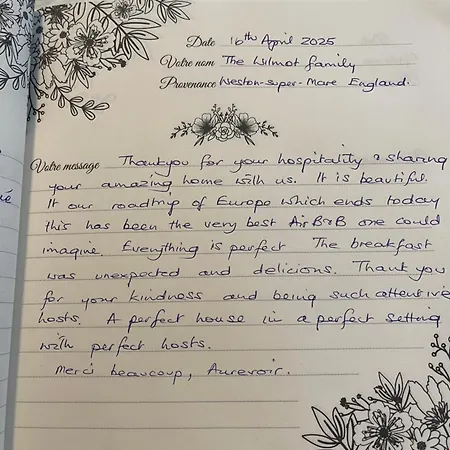 Date 16th April 2025
Votre nom The Wilmot family
Provenance Weston-super-Mare England.
Votre message Thankyou for your hospitality & sharing
your amazing home with us. It is beautiful.
If our roadtrip of Europe which ends today
this has been the very best AirB&B one could
imagine. Everything is perfect The breakfast
was unexpected and delicious. Thank you
for your kindness and being such attentive
hosts. A perfect house in a perfect setting
with perfect hosts.
Merci beaucoup, Aurevoir.